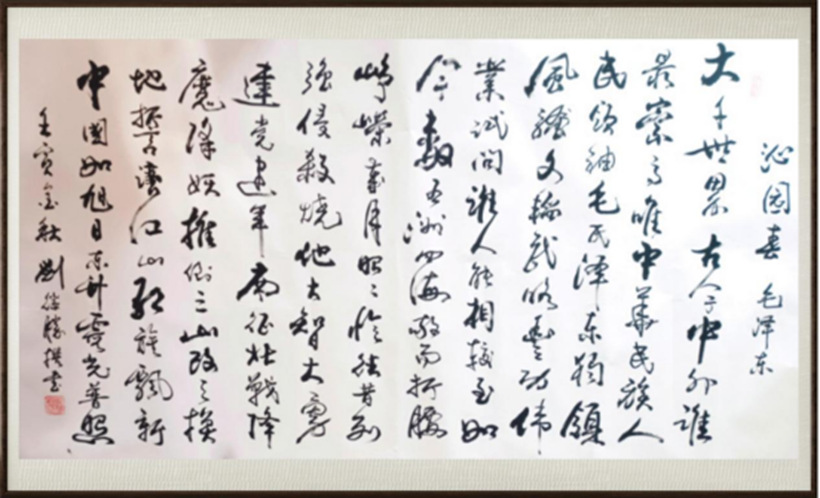 沁园春 毛泽东
大千世界古今中外谁
最崇高唯中华民族人
民领袖毛氏泽东独领
风骚文韬武略丰功伟
業试问谁人能相较至如
今数五洲四海敬而折腰
峥嵘岁月昭昭忆往昔列
强侵殺烧他大智大勇
建党建军南征北戰降
魔降妖推倒三山改天换
地江山红旗飘新
中国如旭日东升霞光普照
壬寅金秋劉勝撰書